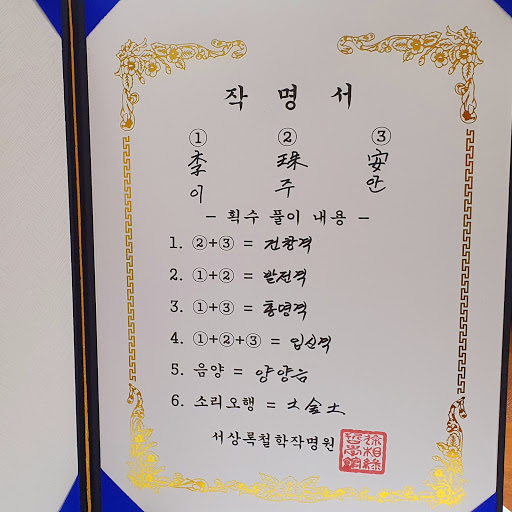 작 명 서
① ② ③
李 珠 安
이 주 안
- 획수 풀이 내용 -
1. ②+③ = 전창격
2. ①+② = 발전격
3. ①+③ = 통명격
4. ①+②+③ = 입신격
5. 음양 = 양양음
6. 소리오행 = 土金土
서상록철학작명원
徐相錄哲學館